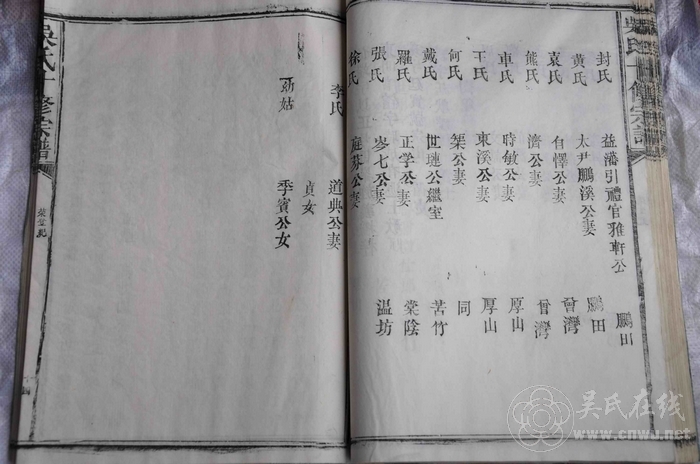 吳氏十修宗譜
封氏 益藩引禮官雅軒公 鵬田
黃氏 太尹鵬溪公妻 鵬田
袁氏 自懌公妻 曾灣
熊氏 濟公妻 曾灣
車氏 時敏公妻 厚山
王氏 東溪公妻 厚山
何氏 公妻 同
戴氏 世璉公繼室 苦竹
羅氏 正学公妻 棠陰
張氏 岑七公妻 温坊
徐氏 庭芬公妻
李氏 道典公妻
貞女
姑 季賓公女
吳氏十修宗譜
吴氏在线
www.cnwj.net